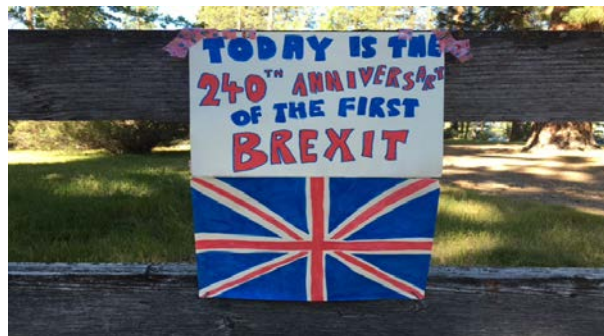 TODAY IS THE
240TH ANNIVERSARY
OF THE FIRST
BREXIT